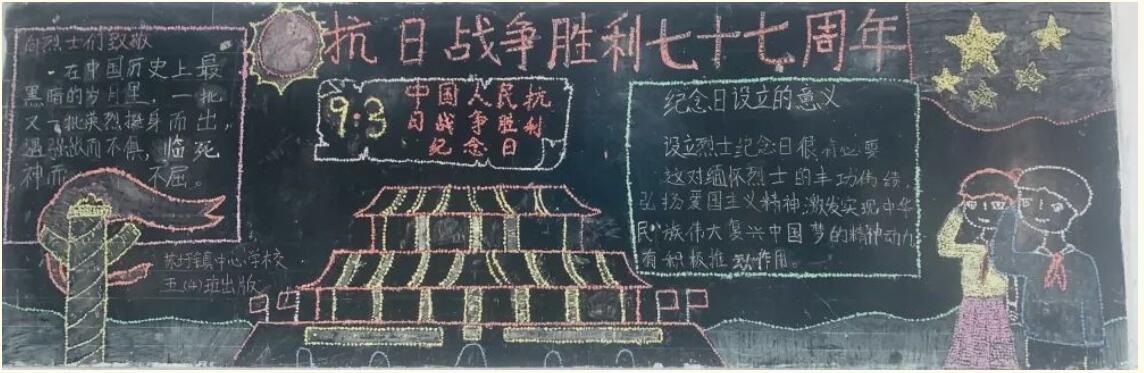 抗日战争胜利七十七周年
向烈士们致敬
在中国历史上最
黑暗的岁月里，一批
又一批英烈挺身而出，
遇强敌而不惧，临死
神而 不屈。
9·3
中国人民抗
日战争胜利
纪念日
纪念日设立的意义
设立烈士纪念日很有必要
这对缅怀烈士的丰功伟绩，
弘扬爱国主义精神,激发实现中华
民族伟大复兴中国梦的精神动力
有积极推动作用。
镇中心学校
五(4)班出版